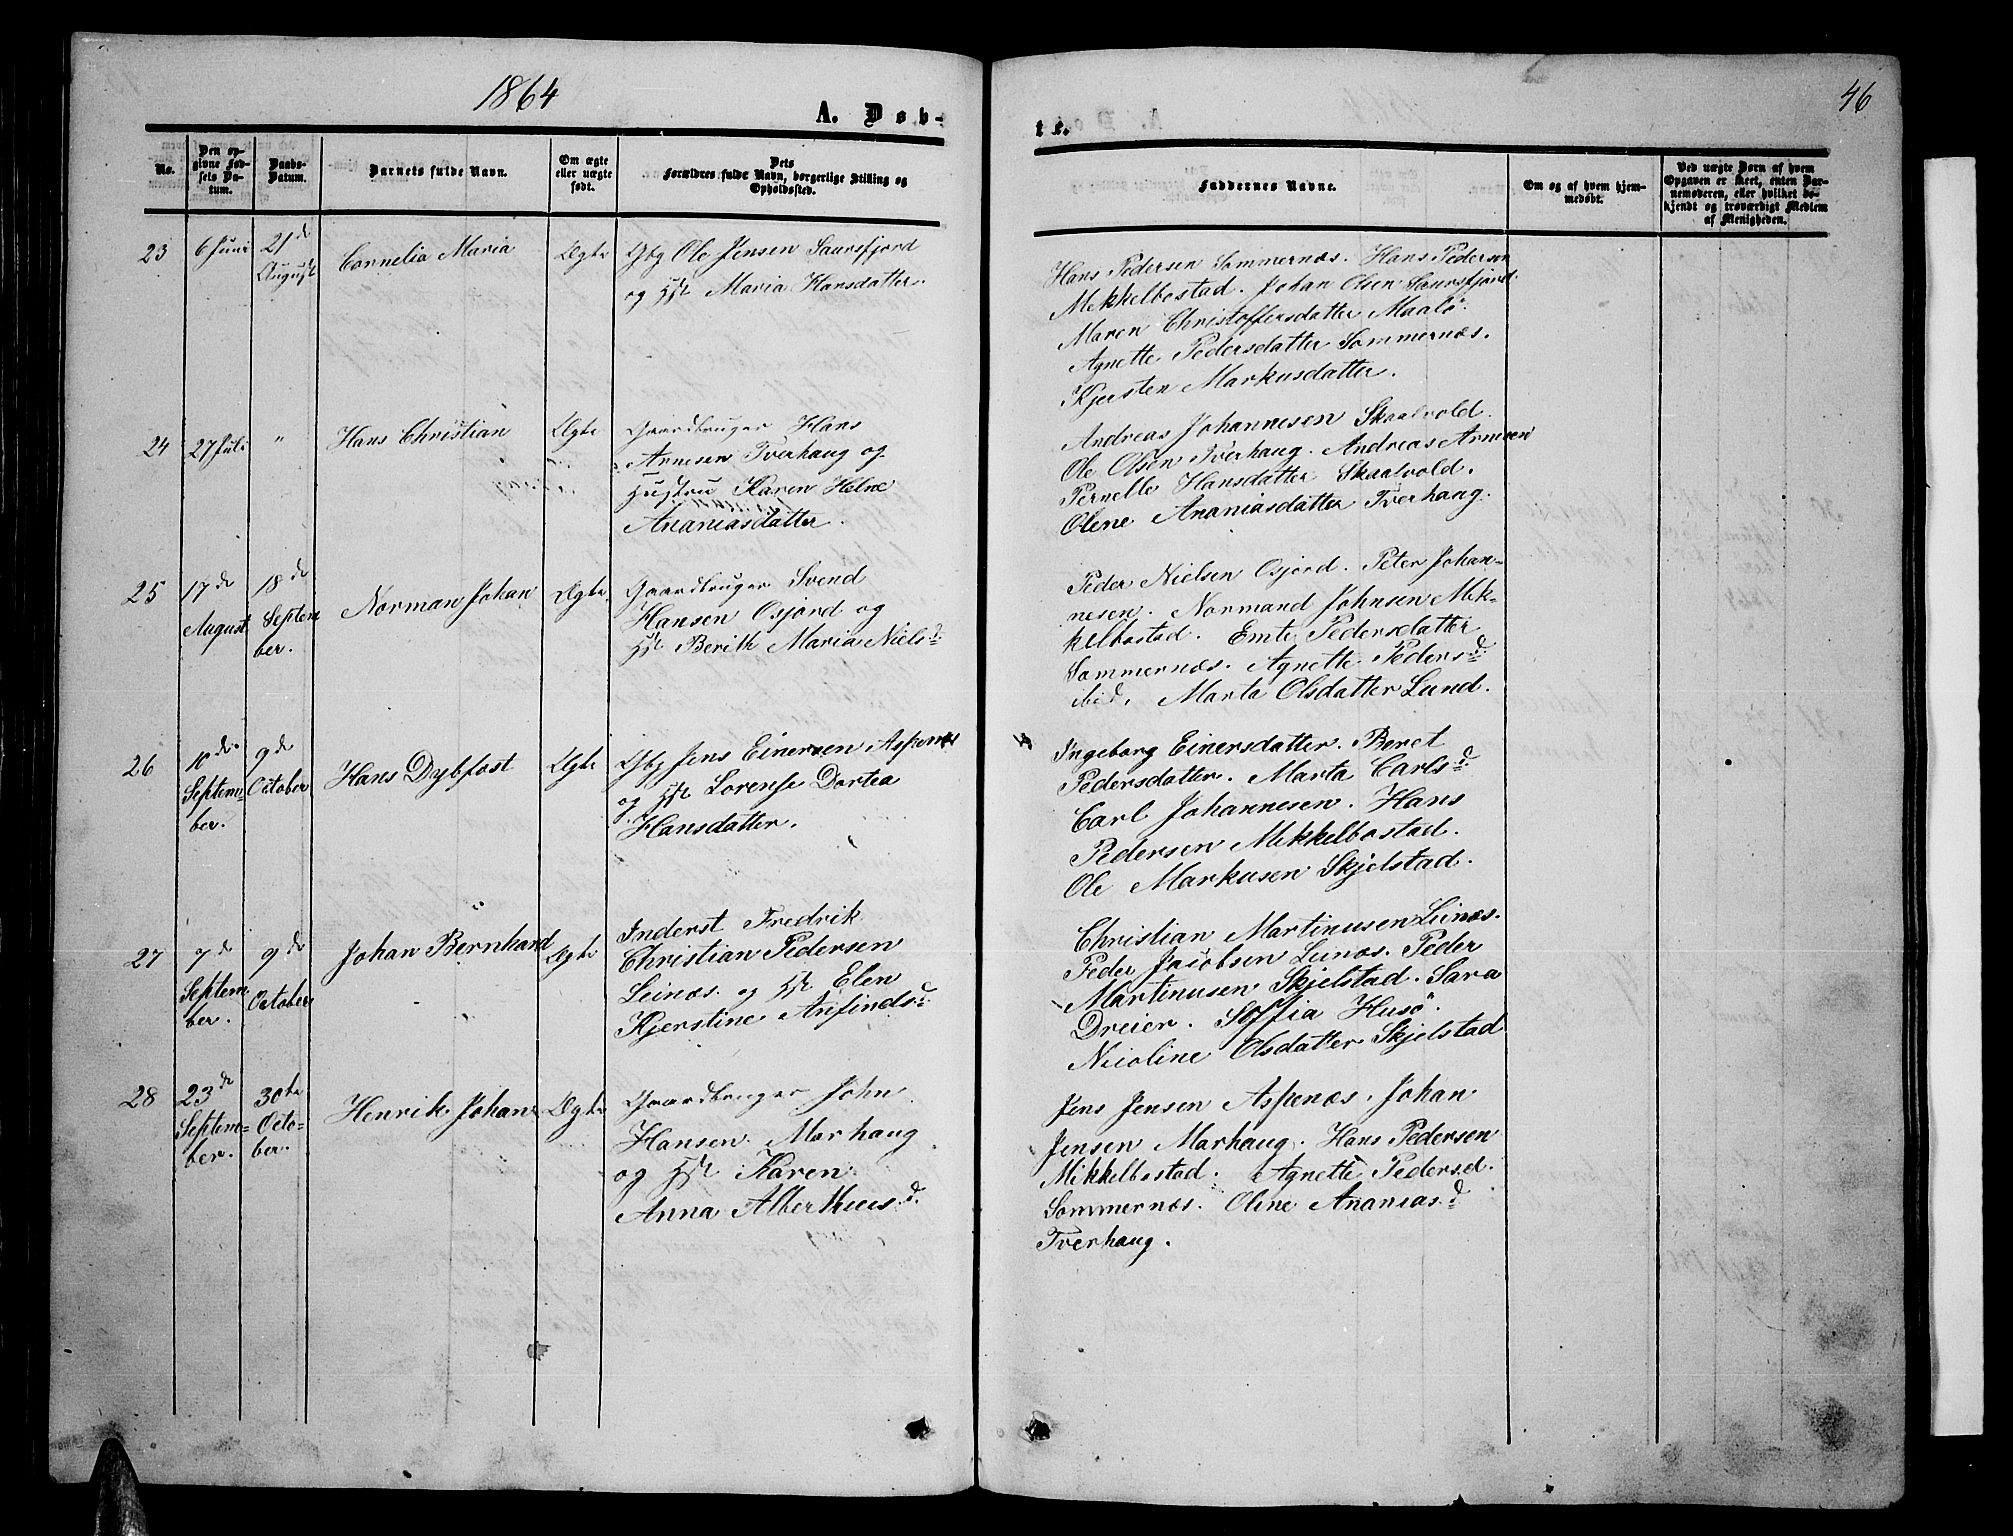 1864
A. Døb-
te.
46
No.
Den op-
givne Fød-
sels Da-
tum.
Daabs-
Datum.
Barnets fulde Navn.
Om ægte
eller uægte
født.
Dets
Forældres fulde Navn, borgerlige Stilling og
Opholdssted.
Faddernes Navne.
Om og af hvem hjem-
medøbt.
Ved uægte Børn af hvem
Opgaven er skeet, enten Bar-
nemoderen, eller hvilket be-
kjendt og troværdigt Medlem
af Menigheden.
23
6 Juni
21de
August
Cornelia Maria
Ægte
Gbg Ole Jensen Saursfjord
og Hst Maria Hansdatter.
Hans Pedersen Sommernæs. Hans Pedersen
Mekkelbostad. Johan Olsen Saursfjord.
Maren Christoffersdatter Maalö.
Agnette Pedersdatter Sommernæs.
Kjersten Markusdatter.
24
27 Juli
"
Hans Christian
Ægte
Gaardbruger Hans
Arnesen Tverhaug og
Hustru Karen Helne
Ananiasdatter.
Andreas Johannesen Skaalvold.
Ole Olsen Tverhaug. Andreas Arnesen
Pernelle Hansdatter Skaalvold.
Olene Ananiasdatter Tverhaug.
25
17de
August
18de
Septem
ber.
Norman Johan
Ægte
Gaardbruger Svend
Hansen Osjord og
Hst Berith Maria Nielsd
Peder Nielsen Osjord. Peter Johan-
nesen. Normand Johnsen Mek-
kelbostad. Emte Pedersdatter
Sommernæs. Agnette Pedersd
ibid. Marta Olsdatter Lund.
26
10de
Septem-
ber.
9de
October
Hans Dybfast
Ægte
Gbg Jens Einersen Aspenæs
og Hst Lorense Dortea
Hansdatter.
Ingeborg Einersdatter. Beret
Pedersdatter. Marta Carlsd
Carl Johannesen. Hans
Pedersen Mekkelbostad.
Ole Markusen Skjelstad.
27
7de
Septem
ber.
9de
October
Johan Bernhard
Ægte
Inderst Fredrik
Christian Pedersen
Leinæs. og Hst Elen
Kjerstine Arfindsd
Christian Martinusen Leinæs.
Peder Jacobsen Leinæs. Peder
Martinusen Skjelstad. Sara
Dreier. Soffia Husö.
Nicoline Olsdatter Skjelstad
28
23de
Septem-
ber.
30te
Octo-
ber.
Henrik Johan
Ægte
Gaardbruger John
Hansen Marhaug
og Hst Karen
Anna Alberthiusd.
Jens Jensen Aspenæs. Johan
Jensen Marhaug. Hans Pedersen
Mikkelbostad. Agnette Pedersd.
Sommernæs. Oline Ananiasd
Tverhaug.